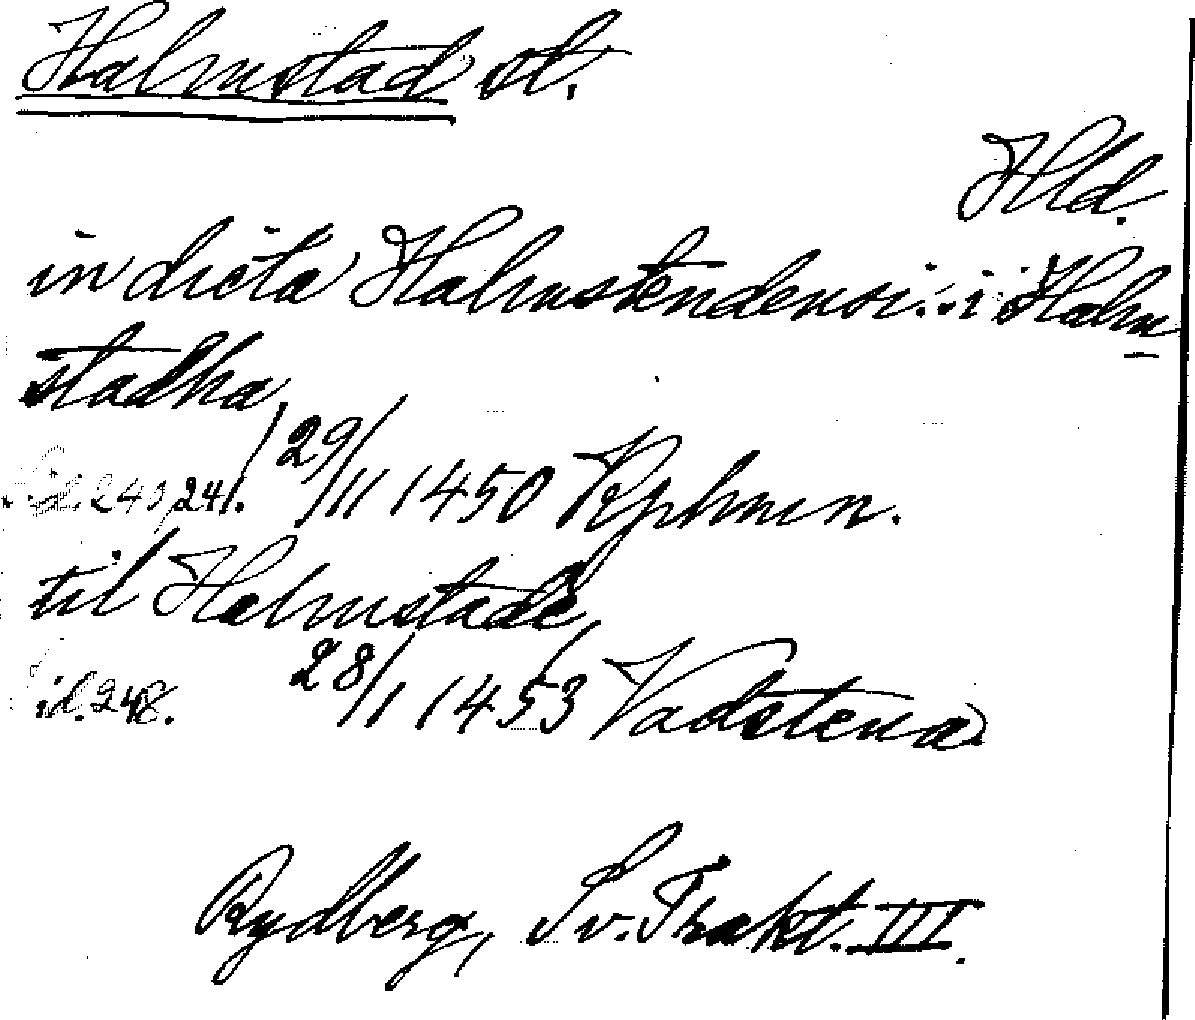 Halmstad st.
Hld.
in dicta Halmstendensi. i Halm
stadha
sid. 240, 241. 29/11 1450 Kphmn.
til Halmstade,
sid. 248. 28/1 1453 Vadstena
Rydberg, Sv. Trakt. III.